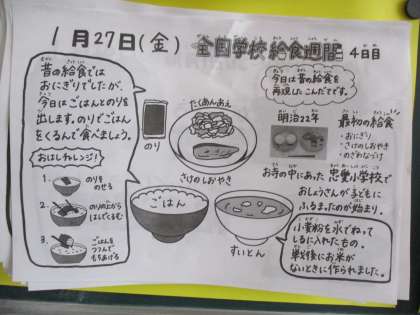 1月27日(金) 全国学校給食週間 4日目
昔の給食では
おにぎりでしたが、
今日はごはんとのりを
出します。のりでごはん
をくるんで食べましょう。
おはしチャレンジ!
1.
のりを
のせる
2.
のりの上から
はしでくるむ
3.
ごはんを
つつんで
もちあげる
のり
たくあんあえ
さけのしおやき
ごはん
すいとん
今日は昔の給食を
再現したこんだてです。
明治22年
最初の給食
・おにぎり
・さけのしおやき
・のざわなづけ
お寺の中にあった 忠愛小学校で
おしょうさんが子どもに
ふるまったのが始まり。
小麦粉を水でねって
しるに入れたもの。
戦後にお米が
ないときに作られました。